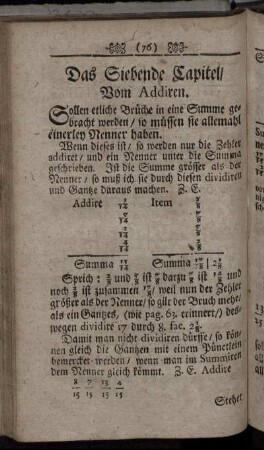 (76)
Das Siebende Capitel/
Vom Addiren.
Sollen etliche Brüche in eine Summe ge-
bracht werden/ so müssen sie allemahl
einerley Nenner haben.
Wenn dieses ist/ so werden nur die Zehler
addiret/ und ein Nenner unter die Summa
geschrieben. Ist die Summe grösser als der
Nenner/ so muß ich sie durch diesen dividiren
und Gantze daraus machen. Z. E.
Addire Item
Summa Summa
Sprich: und ist darzu ist und
noch ist zusammen weil nun der Zehler
größer als der Nenner/ so gilt der Bruch mehr/
als ein Gantzes/ (wie pag. 63. erinnert/) des-
wegen dividire 17 durch 8. fac. 2⅛.
Damit man nicht dividiren dürffe/ so kön-
nen gleich die Gantzen mit einem Pünctlein
bemercket werden/ wenn man im Summiren
dem Nenner gleich kömmt. Z. E. Addire
8 7 13 4
15 15 15 15
Stehet